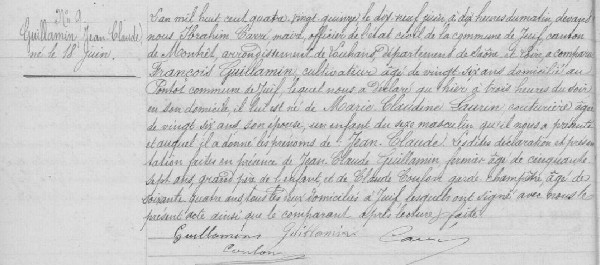 No 9
Guillamin Jean Claude
né le 18 Juin.
L'an mil huit cent quatre vingt quinze le dix neuf juin, à dix heures du matin, devant
nous Abraham maire, officier de l'état civil de la commune de Juif, canton
de Montret, arrondissement de Louhans, département de Saône et Loire, a comparu
François Guillamin cultivateur âgé de vingt six ans domicilié au
commune de Juif, lequel nous a déclaré qu'hier à trois heures du soir
en son domicile il lui est né de Marie Claudine couturière âgée
de vingt six ans, son épouse, un enfant du sexe masculin qu'il nous a présenté
et auquel il a donné les prénoms de Jean Claude. Lesdites déclaration et présen-
tation faites en présence de Jean Claude Guillamin, fermier âgé de cinquante
sept ans, grand père de l'enfant, et de Claude Coulon garde champêtre âgé de
soixante quatre ans, tous les deux domiciliés à Juif, lesquels ont signé avec nous le
présent acte ainsi que le comparant après lecture faite.
Guillamin Guillamin
Coulon